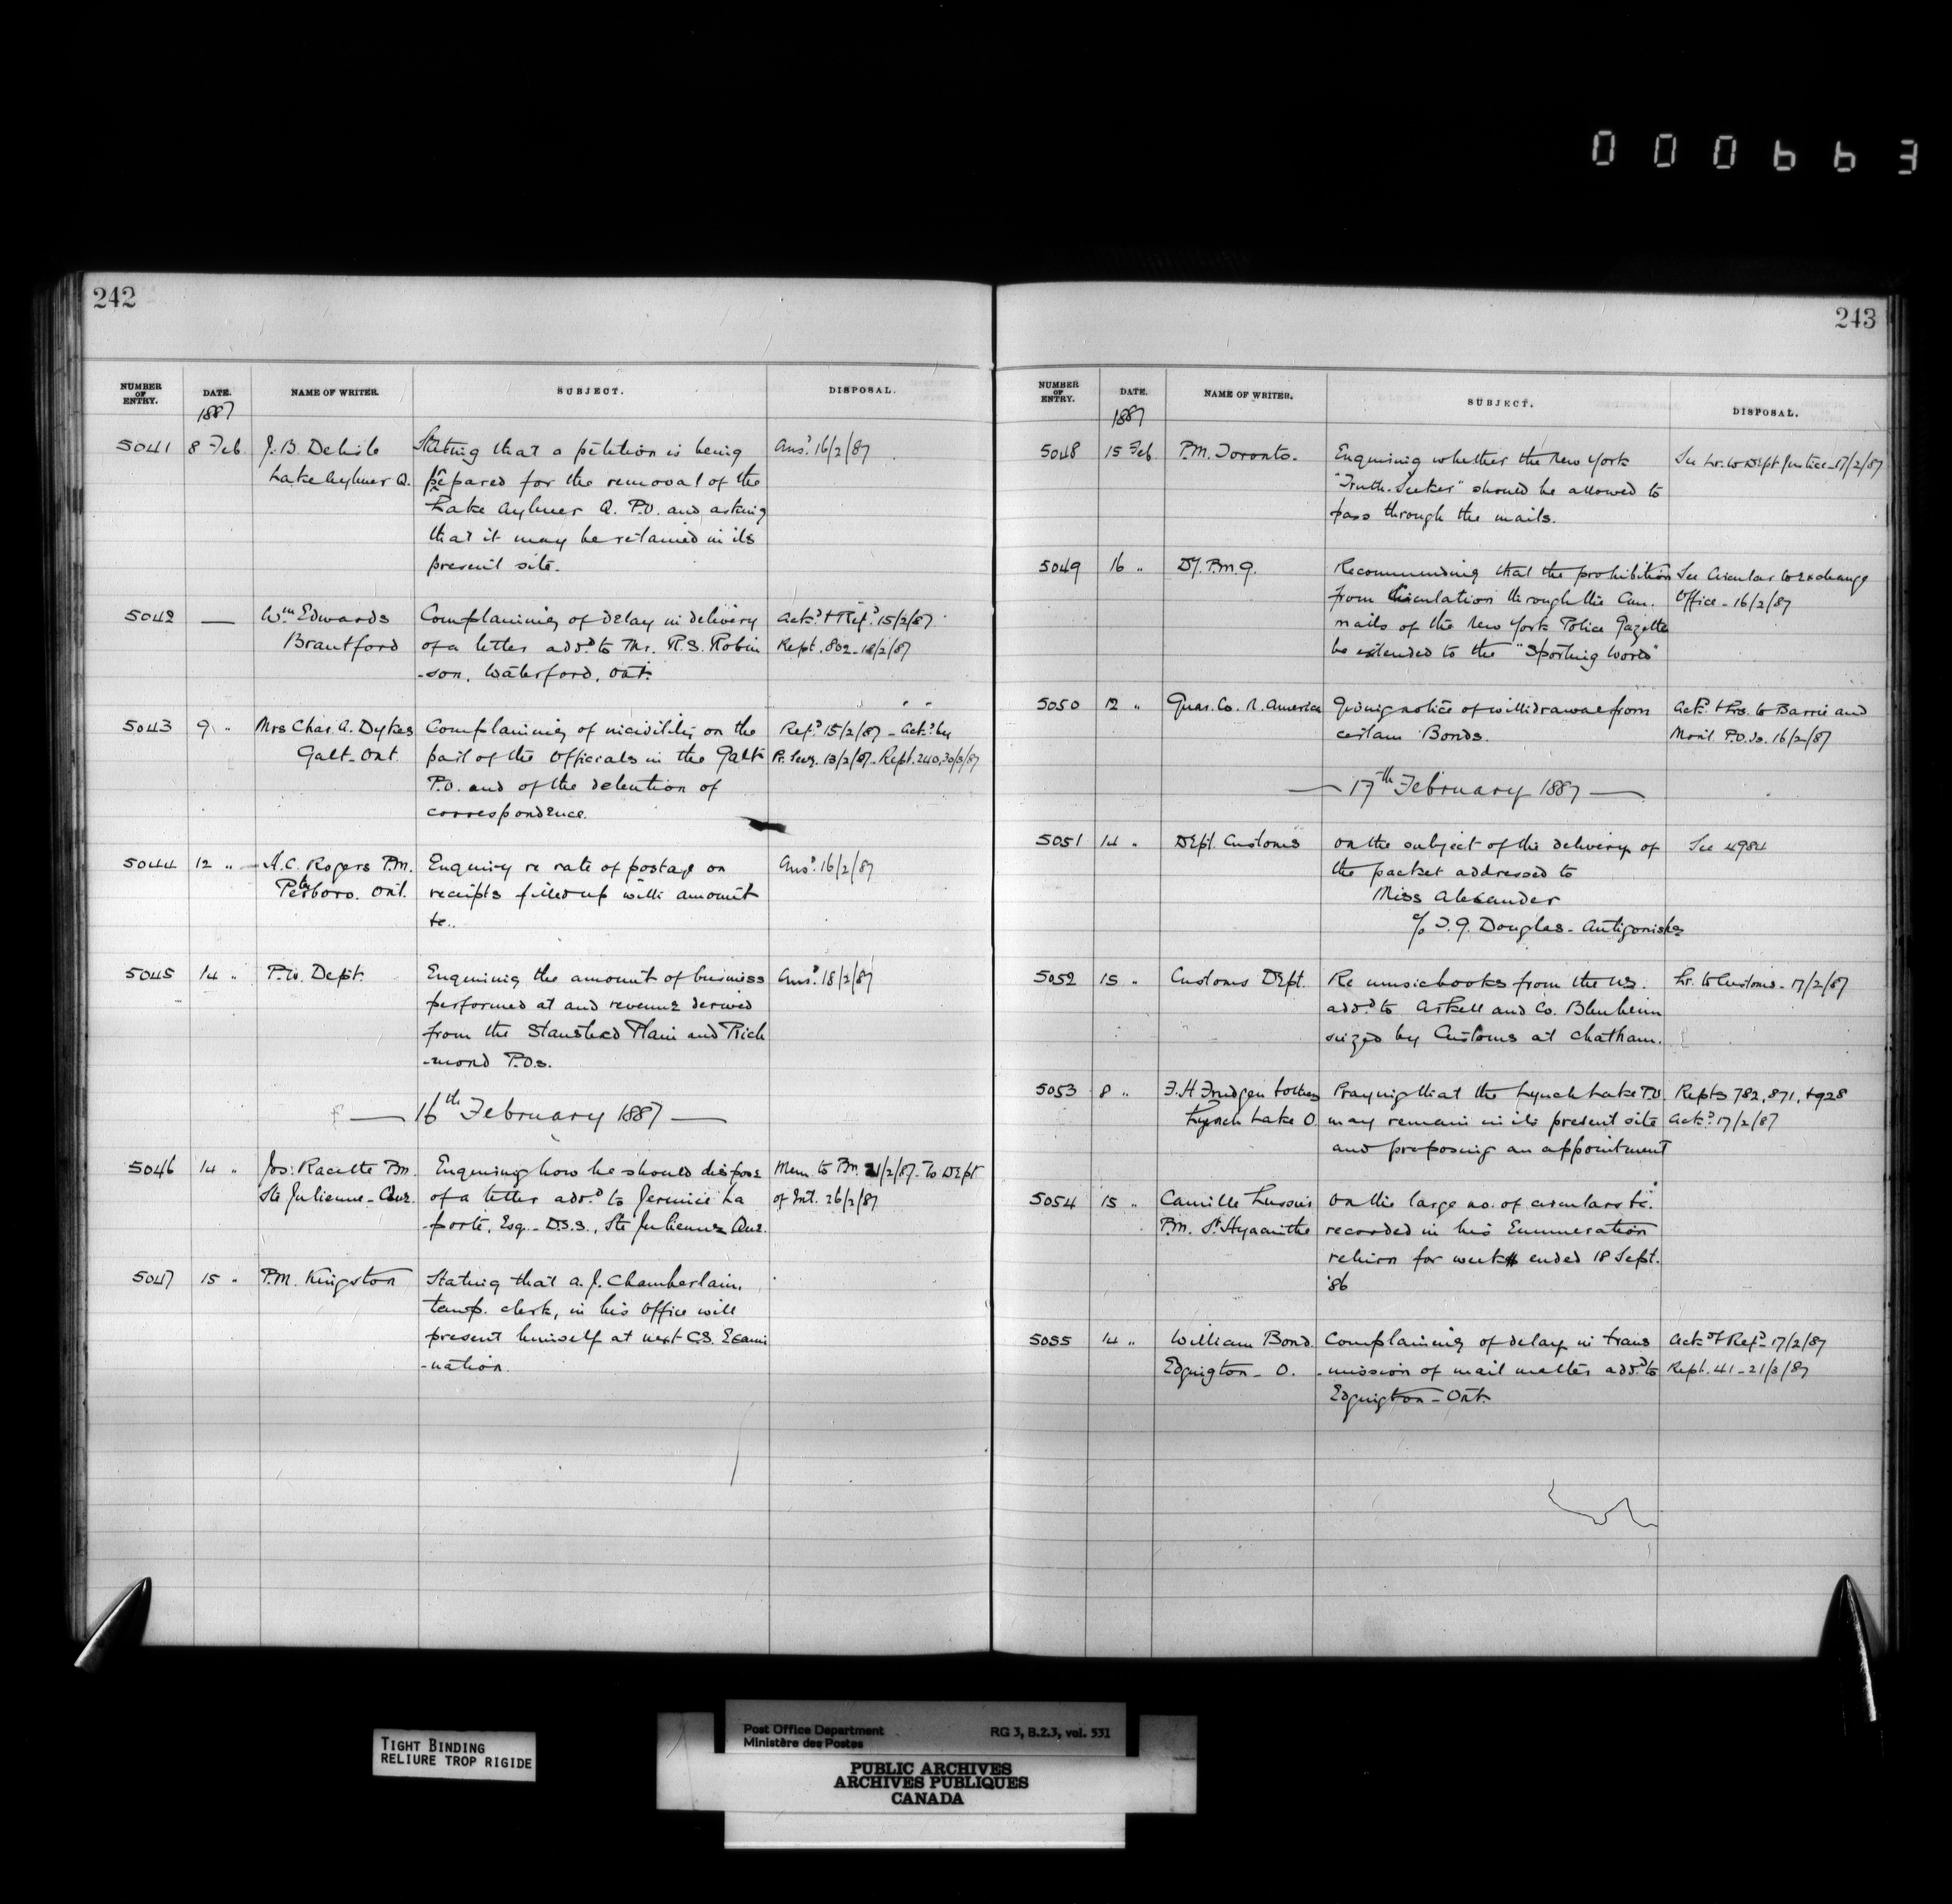 000663
242
NUMBER OF ENTRY. DATE. NAME OF WRITER. SUBJECT. DISPOSAL.
1887
5041 8 Feb J. B. Delisle Stating that a petition is being Ansd. 16/2/87
Lake Aylmer Q. prepared for the removal of the
Lake Aylmer Q. P.O. and asking
that it may be retained in its
present site.
5042 — Wm Edwards Complaining of delay in delivery Ackd. + Refd. 15/2/87
Brantford of a letter addd. to Mr. R. S. Robin
Rept. 802 - 18/2/87
-son, Waterford, Ont.
5043 9 " Mrs Chas. A. Dykes Complaining of incivility on the Refd. 15/2/87 - Ackd. by
Galt - Ont. part of the Officials in the Galt P. Secy. 13/2/87 - Rept. 240, 30/3/87
P.O. and of the detention of
correspondence.
5044 12 " A. C. Rogers P.M. Enquiry re rate of postage on Ansd. 16/2/87
Peterboro. Ont. receipts filled up with amount
&c..
5045 14 " P.W. Dept. Enquiring the amount of business Ansd. 18/2/87
performed at and revenue derived
from the Stanstead Plain and Rich
-mond P.Os.
— 16th February 1887 —
5046 14 " Jos: Racette P.M. Enquiring how he should dispose Mem to P.M. 21/2/87. To Dept
Ste Julienne - Que. of a letter addd. to Jeremie La of Int. 26/2/87
-porte, Esq. - D.S.S., Ste Julienne Que.
5047 15 " P.M. Kingston Stating that A. J. Chamberlain,
temp. clerk, in his Office will
present himself at next C.S. Exami
-nation.
243
NUMBER OF ENTRY. DATE. NAME OF WRITER. SUBJECT. DISPOSAL.
1887
5048 15 Feb. P.M. Toronto. Enquiring whether the New York See Lr. to Dept Justice - 17/2/87
"Truth-Seeker" should be allowed to
pass through the mails.
5049 16 " Dy. P.M.G. Recommending that the prohibition See Circular to Exchange
from circulation through the Can. Office - 16/2/87
mails of the New York Police Gazette
be extended to the "Sporting World"
5050 12 " Guar. Co. N. America Giving notice of withdrawal from Ackd. + Lrs. to Barrie and
certain Bonds. Mont. P.O. Is. 16/2/87
— 17th February 1887 —
5051 14 " Dept. Customs On the subject of the delivery of See 4984
the packet addressed to
Miss Alexander
c/o T. G. Douglas - Antigonish
5052 15 " Customs Dept. Re music books from the U.S. Lr. to Customs - 17/2/87
addd. to Askell and Co. Blenheim
seized by Customs at Chatham.
5053 8 " F. H. Frudgen + others Praying that the Lynch Lake P.O. Repts 782, 871, + 928
Lynch Lake O. may remain in its present site Ackd. 17/2/87
and proposing an appointment
5054 15 " Camille Lussier On the large no. of circulars &c.
P.M. St. Hyacinthe recorded in his Enumeration
return for week ended 18 Sept.
'86
5055 14 " William Bond Complaining of delay in trans Ackd. + Refd. 17/2/87
Edgington - O. -mission of mail matter addd. to Rept. 41 - 21/3/87
Edgington - Ont.
TIGHT BINDING
RELIURE TROP RIGIDE
Post Office Department RG 3, B.2.3, vol. 531
Ministère des Postes
PUBLIC ARCHIVES
ARCHIVES PUBLIQUES
CANADA